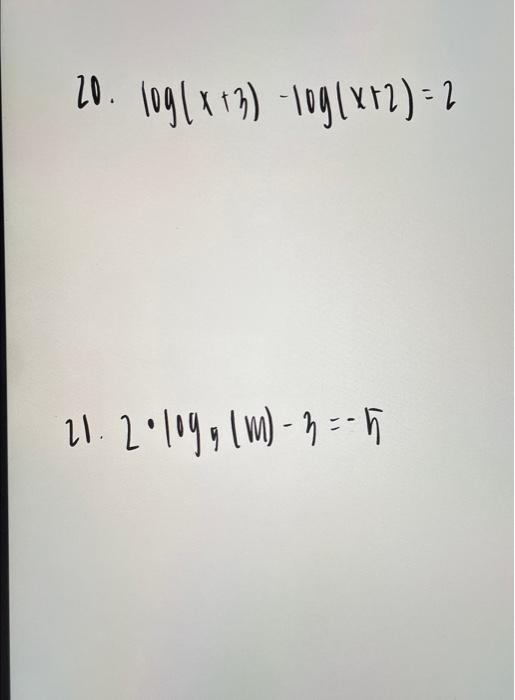 20. log(x+3) - log(x+2) = 2
21. 2•log₉(m) - 3 = -5